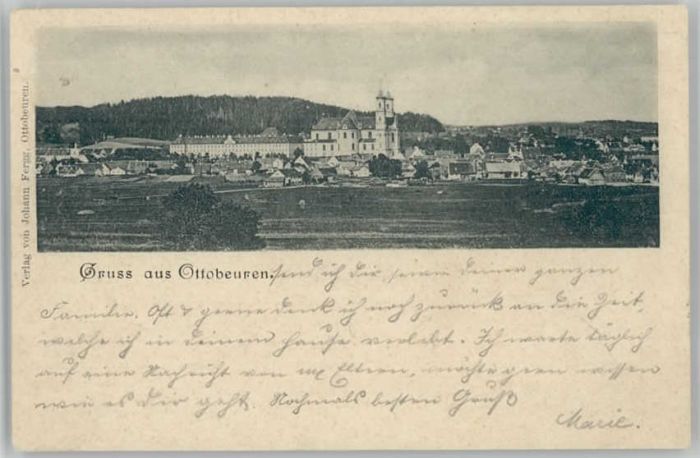 Verlag von Johann Fergg, Ottobeuren.
Gruss aus Ottobeuren. send ich dir, sowie deiner ganzen
Familie. Oft & gerne denk ich noch zurück an die Zeit,
welche ich in deinem Hause verlebt. Ich warte täglich
auf eine Nachricht von Eltern, möchte gern wissen
wie es dir geht. Nochmals besten Gruß
Marie.